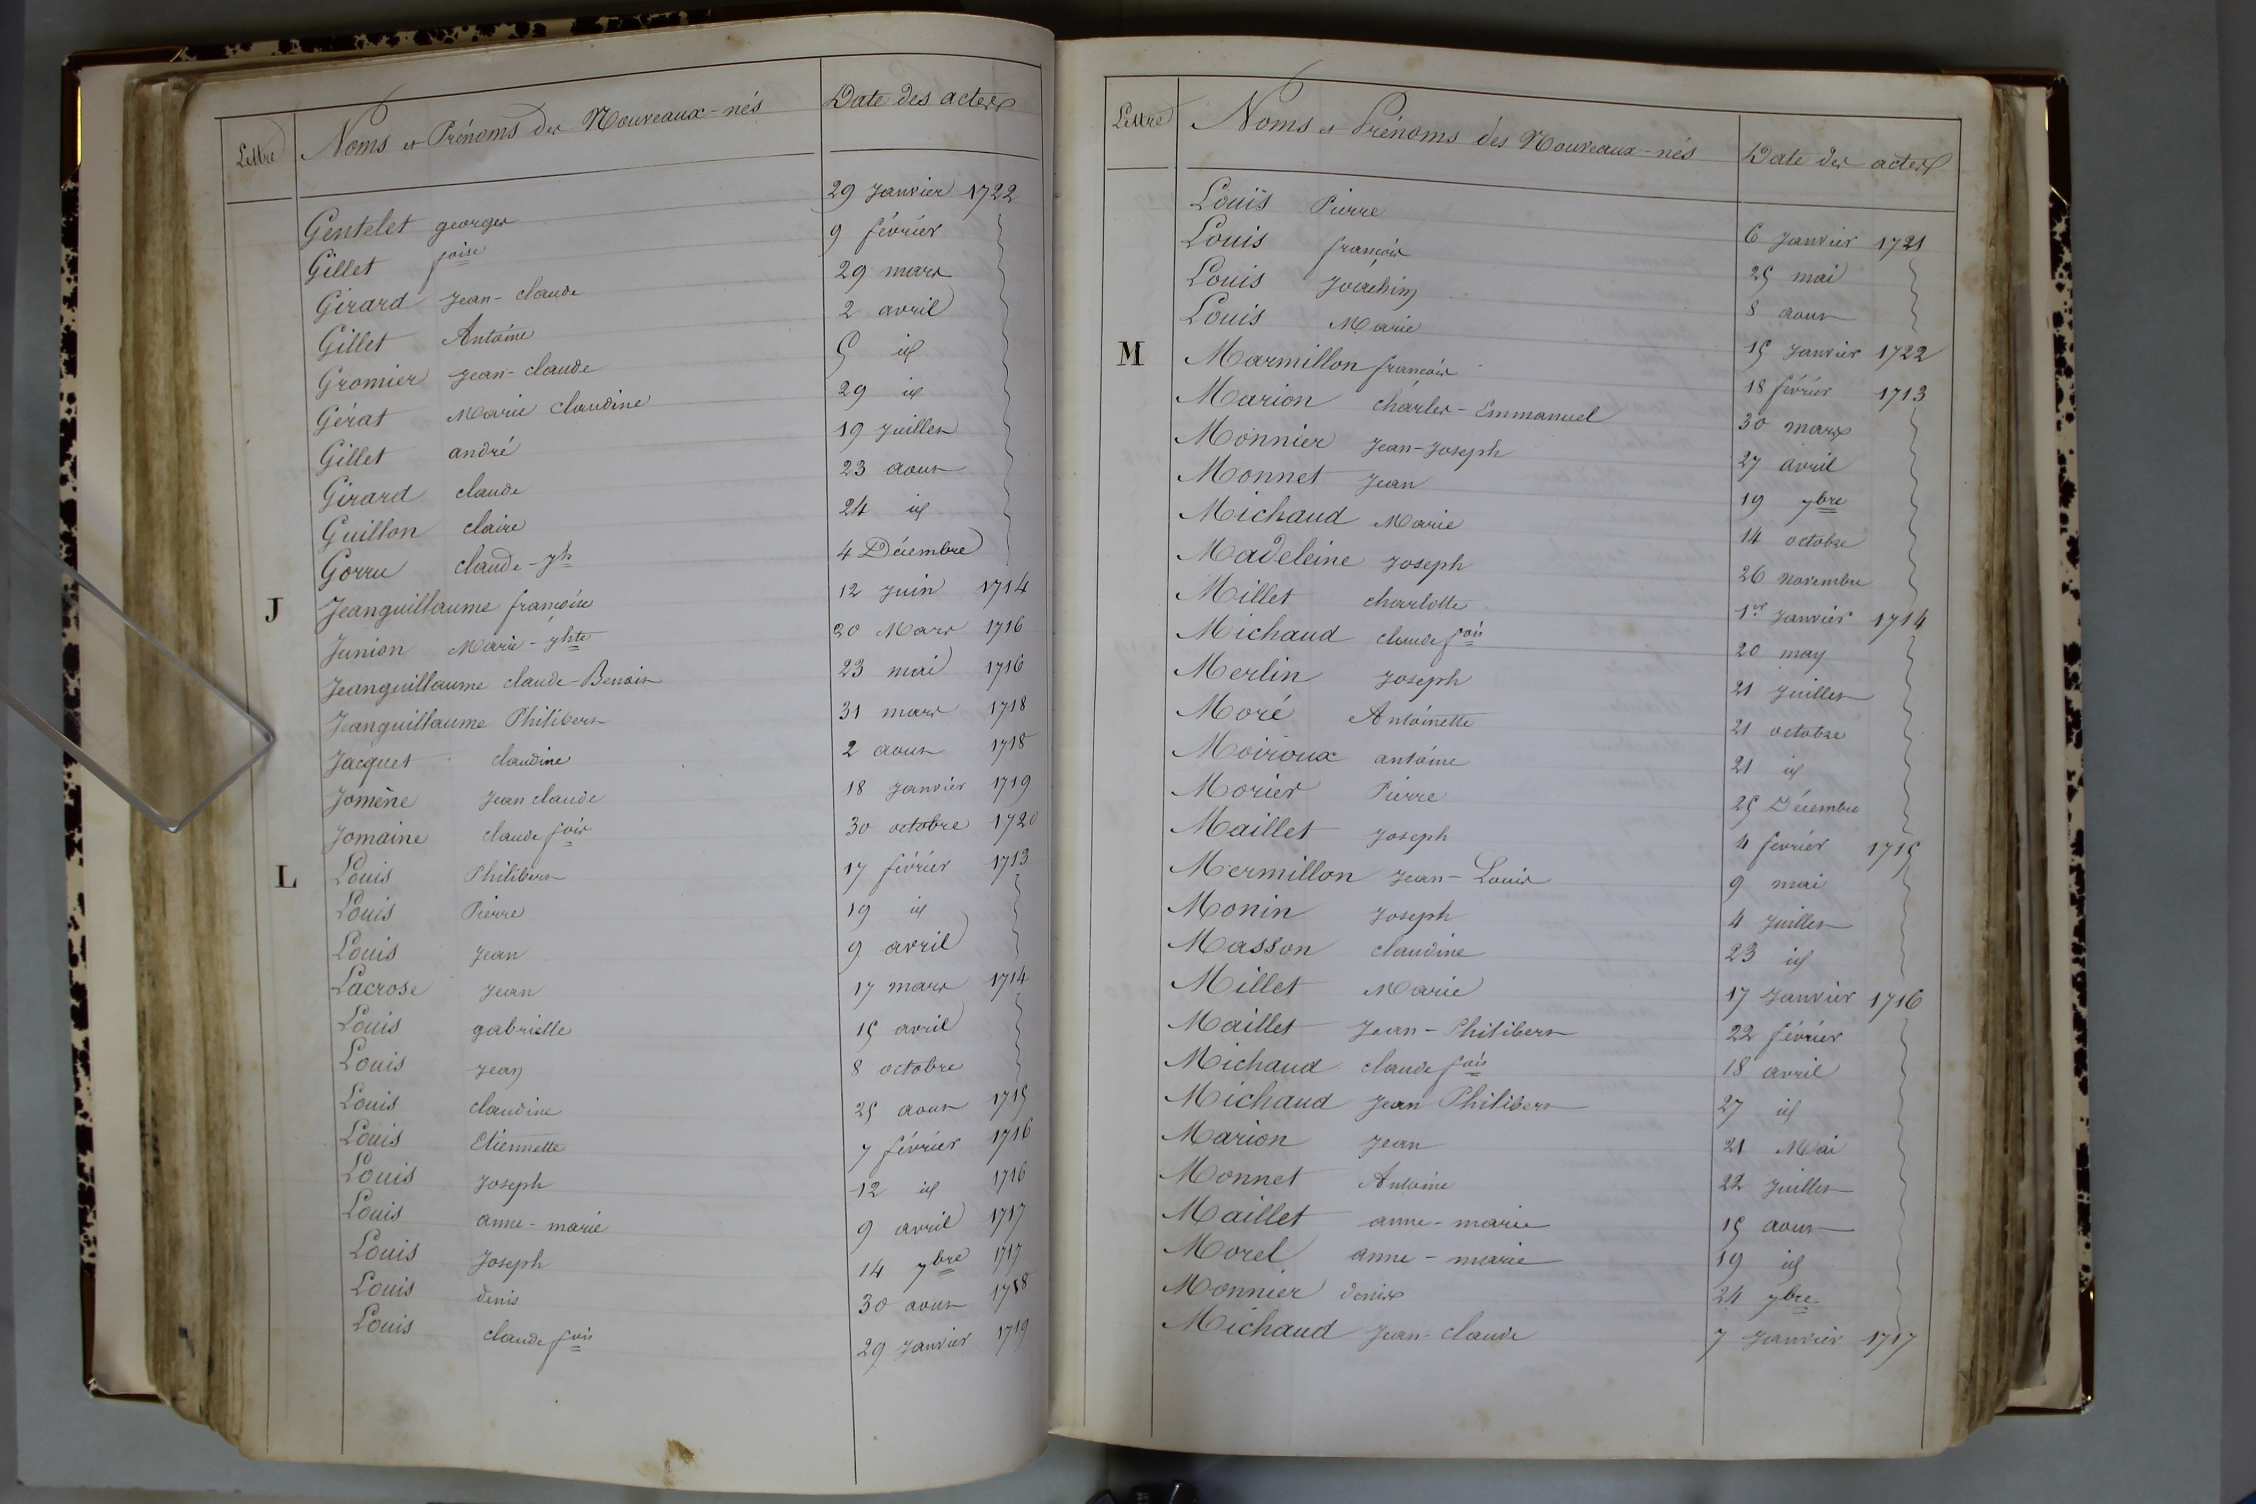 Lettre Noms et Prénoms des Nouveaux-nés Date des actes
Gentelet georges 29 Janvier 1722
Gillet foise 9 février
Girard Jean-claude 29 mars
Gillet Antoine 2 avril
Gromier Jean-claude 5 id
Gérat Marie claudine 29 id
Gillet andré 19 Juillet
Girard claude 23 aout
Guillon claire 24 id
Gorru claude-jh 4 Décembre
J Jeanguillaume françoise 12 Juin 1714
Junion Marie-jhte 20 Mars 1716
Jeanguillaume claude-Benoit 23 mai 1716
Jeanguillaume Philibert 31 mars 1718
Jacquet claudine 2 aout 1718
Jomène Jean claude 18 Janvier 1719
Jomaine claude fois 30 octobre 1720
L Louis Philibert 17 février 1713
Louis Pierre 19 id
Louis Jean 9 avril
Lacrose Jean 17 mars 1714
Louis gabrielle 15 avril
Louis Jean 8 octobre
Louis claudine 25 aout 1715
Louis Etiennette 7 février 1716
Louis Joseph 12 id 1716
Louis anne-marie 9 avril 1717
Louis Joseph 14 7bre 1717
Louis denis 30 aout 1718
Louis claude fois 29 Janvier 1719
Lettre Noms et Prénoms des Nouveaux-nés Date des actes
Louis Pierre 6 Janvier 1721
Louis françois 25 mai
Louis Joachim 8 aout
Louis Marie 15 Janvier 1722
M Marmillon françois 18 février 1713
Marion charles-Emmanuel 30 mars
Monnier Jean-Joseph 27 avril
Monnet Jean 19 7bre
Michaud Marie 14 octobre
Madeleine Joseph 26 novembre
Millet charlotte 1er Janvier 1714
Michaud claude fois 20 may
Merlin Joseph 21 Juillet
Moré Antoinette 21 octobre
Moiroux antoine 21 id
Morier Pierre 25 Décembre
Maillet Joseph 4 février 1715
Mermillon Jean-Louis 9 mai
Monin Joseph 4 Juillet
Masson claudine 23 id
Millet Marie 17 Janvier 1716
Maillet Jean-Philibert 22 février
Michaud claude fois 18 avril
Michaud Jean Philibert 27 id
Marion Jean 21 Mai
Monnet Antoine 22 Juillet
Maillet anne-marie 15 aout
Morel anne-marie 19 id
Monnier denis 24 7bre
Michaud Jean-claude 7 Janvier 1717